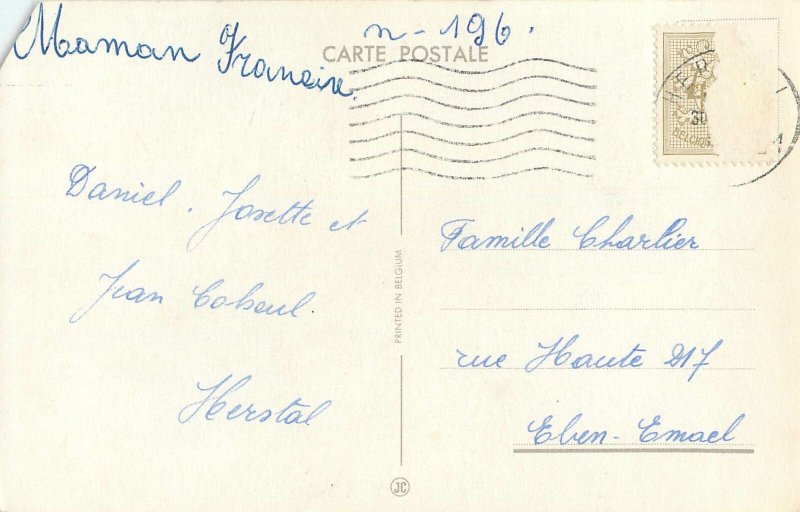 Maman Francine
n-196.
CARTE POSTALE
Daniel. Josette et
Jean Coheul.
Herstal
PRINTED IN BELGIUM
Famille Charlier
rue Haute 217
Eben-Emael
JC
30